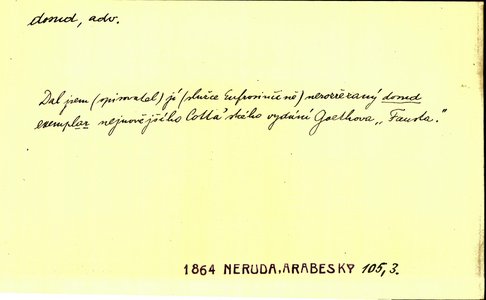 dosud, adv.
Dal jsem (spisovatel) jí (slečce Eufrosinčině) nerozřezaný dosud
exemplar nejnovějšího Cottaského vydání Goethova „Fausta."
1864 NERUDA, ARABESKY 105, 3.